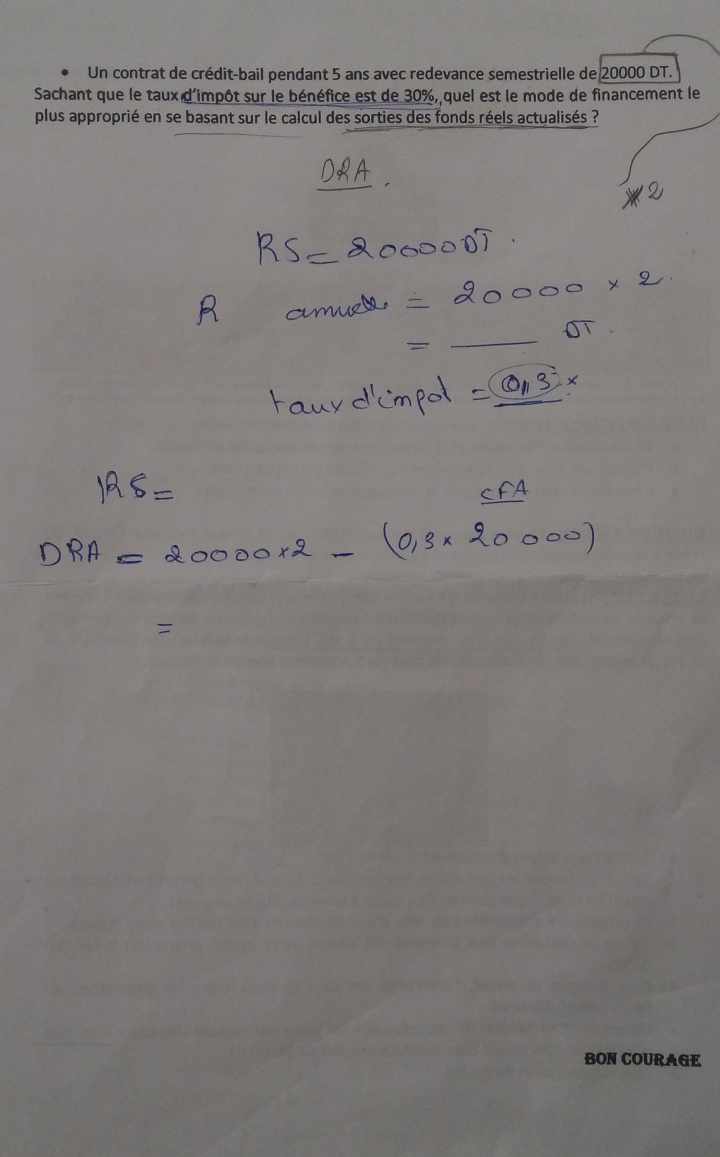 • Un contrat de crédit-bail pendant 5 ans avec redevance semestrielle de 20000 DT.
Sachant que le taux d'impôt sur le bénéfice est de 30%, quel est le mode de financement le
plus approprié en se basant sur le calcul des sorties des fonds réels actualisés ?
DRA.
x2
RS = 20000 DT.
R annuelle = 20000 x 2.
= ____ DT.
taux d'impot = 0,3 x
RS =
CFA
DRA = 20000x2 - (0,3 x 20000)
=
BON COURAGE